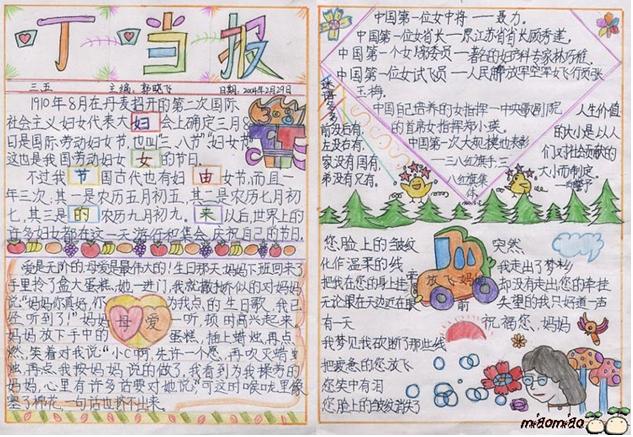 叮当报
三五 主编:郭晓飞 日期:2004年2月29日
1910年8月在丹麦招开的第二次国际
社会主义妇女代表大 妇 会上确定三月八
日是国际劳动妇女节,也叫三八节"妇女节"
这也是我国劳动妇女 女 的节日.
不过我 节 国古代也有妇 由 女节,而且一
年三次,其一是农历五月初五,其二是农历七月初
七,其三是 的 农历九月初九. 来 以后,世界上的
许多妇女都在这一天游行和集会,庆祝自己的节日.
爱是无价的,母爱是最伟大的!生日那天,妈妈下班回来了
手里拎了盒大蛋糕.她一进门,我就撒娇似的对妈妈
说"妈妈你真好,们 为我点的生日歌,我已
经听到了!"妈妈 母爱 一听,顿时高兴起来.
妈妈放下手中的 蛋糕,插上蜡烛,再点
燃,笑着对我说"小仁啊,先许一个愿,再吹灭蜡
烛,再点我按妈妈说的做了,我看到为我操劳的
妈妈,心里有许多话要对她说"可这时喉咙里像
塞了棉花,一句话也挤不出来.
中国第一位女中将——聂力.
中国第一位女省长——原江苏省省长顾秀莲.
中国第一个女院委员——著名的妇产科专家林巧稚.
中国第一位女试飞员——人民解放军空军女飞行员张
玉梅.
中国自己培养的女指挥—中央歌剧院
的首席女指挥郑小瑛.
中国第一次大规模电影
—三八红旗手三
八红旗集
体.
前没后有,
左没右有,
家没有国有,
弟没有兄有.
人生价值
的大小是以人
们对社会贡献的
大小而制定
您脸上的皱纹
化作温柔的线
把我在您的身上挂
无论眼在天边还在
有一天
我梦见我砍断了那些线
把疲惫的您放飞
您笑中有泪
您脸上的皱纹消失了
放飞妈妈
突然
我走出了梦乡
却没有走出您的牵挂
失望的我只好道一声
祝福您,妈妈
miaomiao